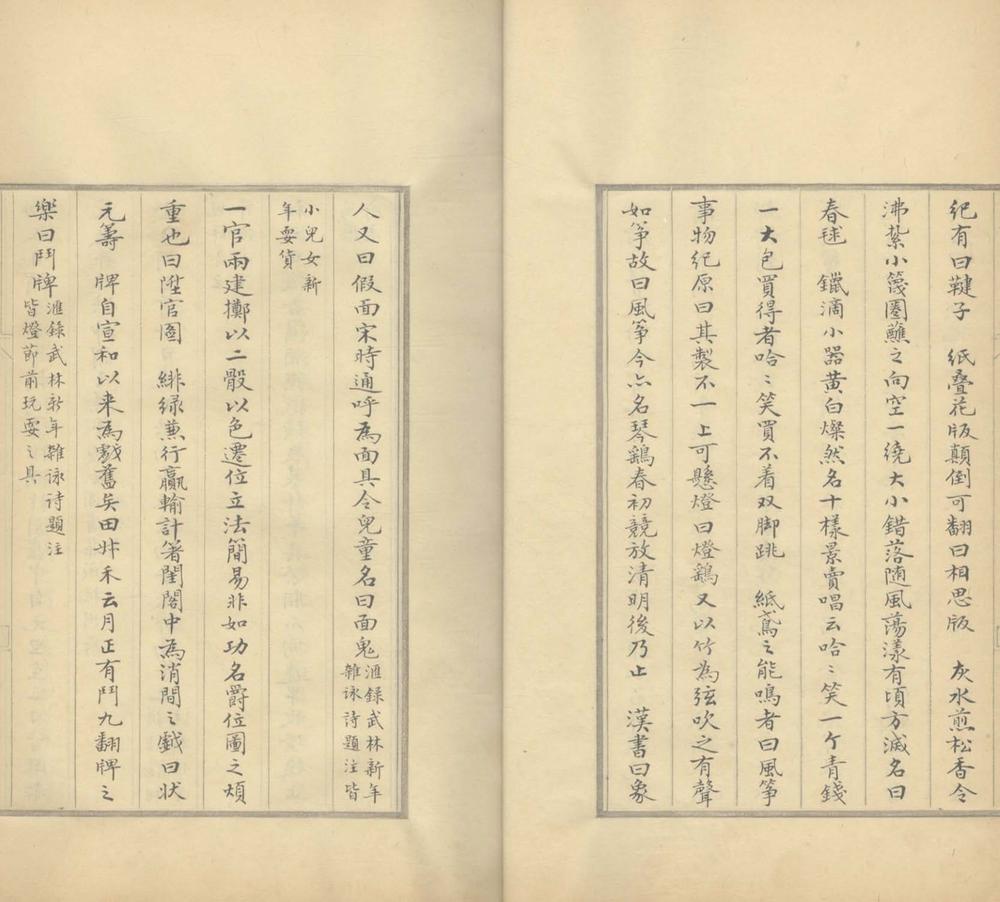 紀有曰鞬子　紙叠花版顛倒可翻曰相思版　灰水煎松香令
沸紮小篾圈蘸之向空一繞大小錯落随風蕩漾有頃方滅名曰
春毬　鑞滴小器黄白燦然名十樣景賣唱云哈〻笑一个青錢
一大包買得者哈〻笑買不着双脚跳　紙鳶之能鳴者曰風筝
事物纪原曰其製不一上可懸燈曰燈鷂又以竹為弦吹之有聲
如筝故曰風筝今亦名琴鷂春初競放清明後乃止　漢書曰象
人又曰假面宋時通呼為面具今兒童名曰面鬼滙錄武林新年
雜詠詩題注皆
小兒女新
年耍貨
一官兩建擲以二骰以色遷位立法簡易非如功名爵位圖之煩
重也曰陞官图　緋绿蒹行贏輸計箸閨閣中為消閒之戲曰状
元籌　牌自宣和以来為戲舊矣田艸禾云月正有鬥九翻牌之
樂曰鬥牌滙錄武林新年雜詠詩題注
皆燈節前玩耍之具